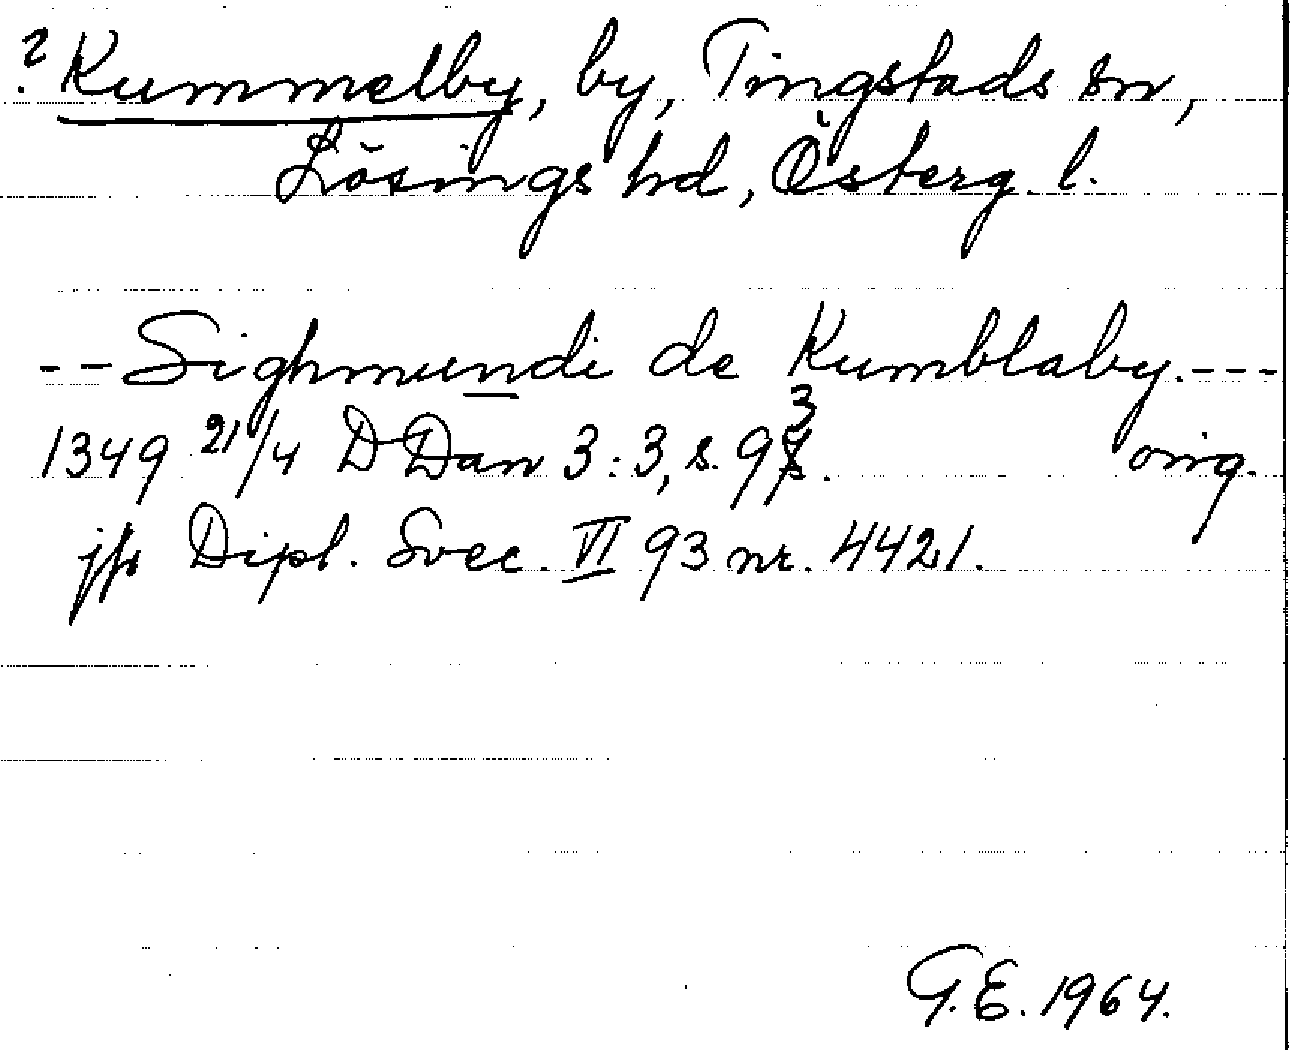 ? Kummelby, by, Tingstads sn,
Lösings hd, Österg. l.
-- Sighmundi de Kumblaby. ---
1349 21/4 D Dan 3:3, s. 93. orig.
jfr Dipl. Svec. VI 93 nr. 4421.
G.E. 1964.